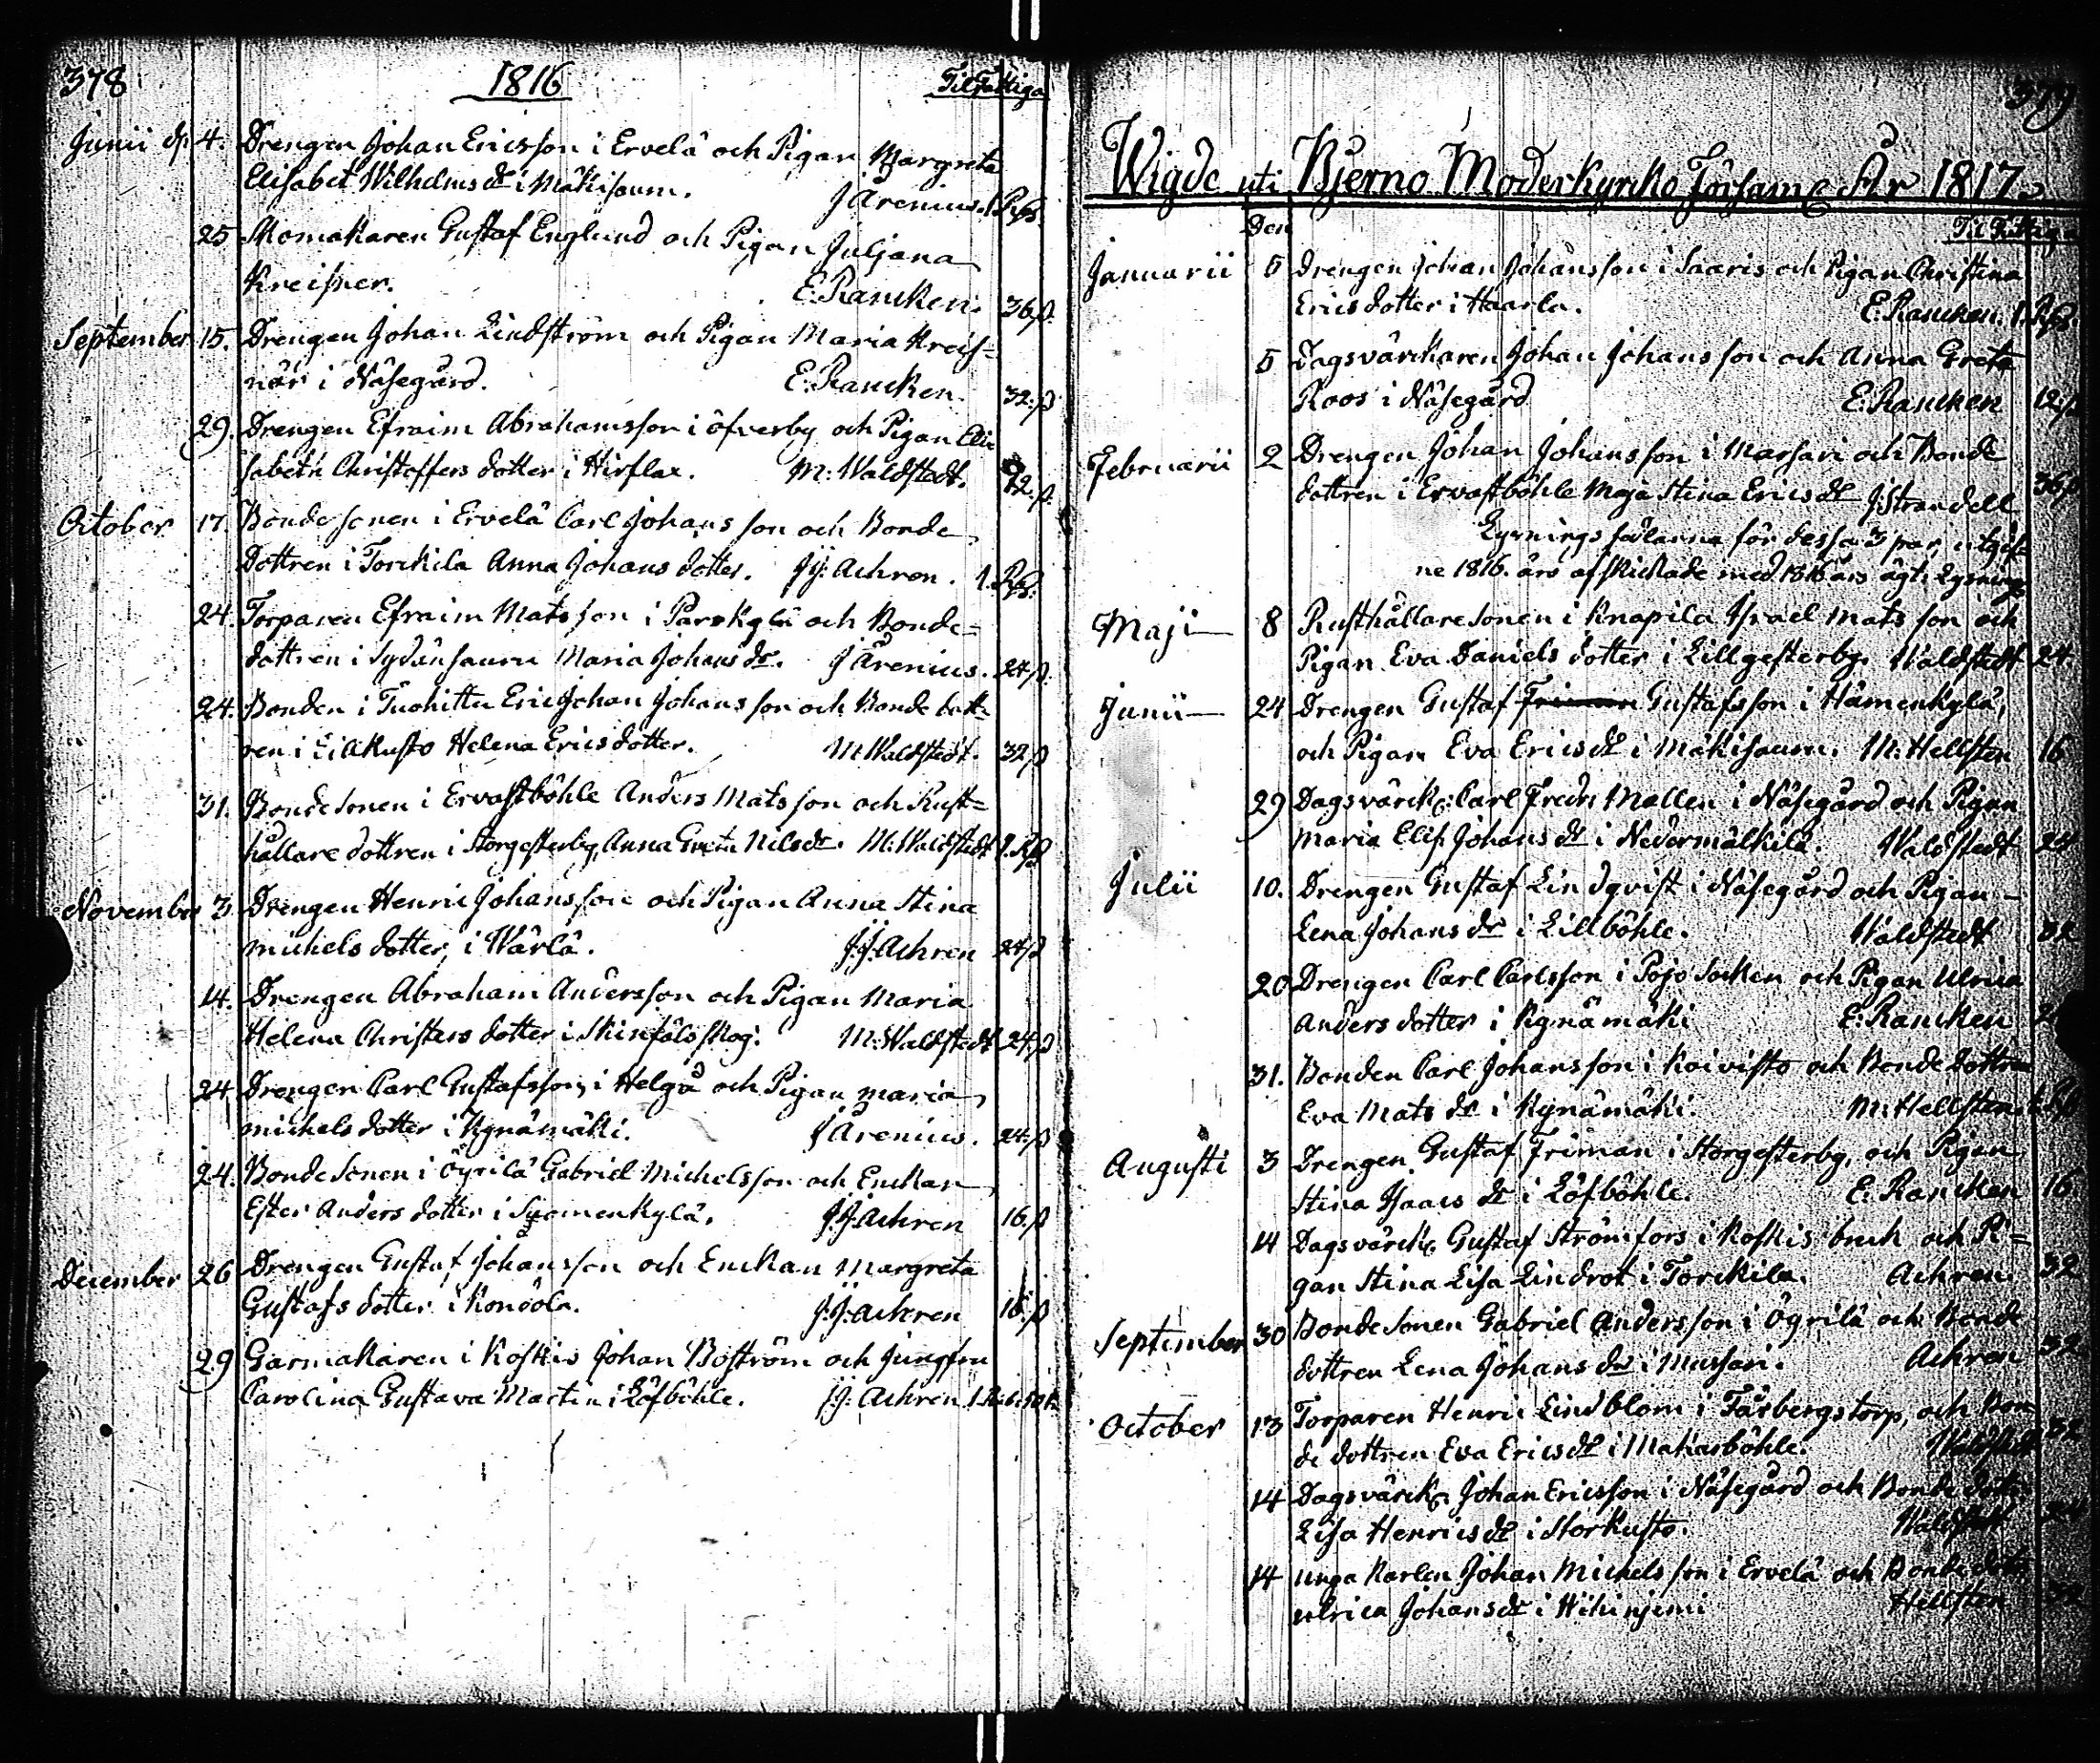 378
1816
Til Fattiga
Junii d. 4. Drengen Johan Ericsson i Ervelä och Pigan Margreta
Elisabet Wilhelms dr i Mäkisaum. J Ärenius. 1 Rß.
25 Skomakaren Gustaf Englund och Pigan Juljana
Kreisner. E. Rancken. 36 ß.
September 15. Drengen Johan Lindström och Pigan Maria Kreis=
när i Näsegård. E. Rancken. 32. ß
29. Drengen Efraim Abrahamsson i öfverby och Pigan Eli
sabeth Christoffers dotter i Hirflax. M. Waldstedt. 72. ß.
October 17. Bonde sonen i Ervelä Carl Johansson och Bonde
Dottren i Torckila Anna Johans dotter. J.J. Achren. 1. Rß.
24. Torparen Efraim Matsson i Parskylä och Bonde=
dottren i Sydänsauru Maria Johans dr. J Ärenius. 24 ß.
24. Bonden i Tuohittu Eric Johan Johansson och Bonde dott=
ren i Lillkusto Helena Ericsdotter. M Waldstedt. 32 ß
31. Bondesonen i Ervastböhle Anders Matsson och Rust=
hållare dottren i Storgesterby, Anna Greta Nilsdr. M. Waldstedt 1. Rß
November 3 Drengen Henric Johansson och Pigan Anna Stina
michels dotter, i Wärlä. J.J. Achren 24 ß
14. Drengen Abraham Andersson och Pigan Maria
Helena Christers dotter i Skinfälsskog. M. Waldstedt 24. ß
24 Drengen Carl Gustafsson, i Helgå och Pigan maria
michels dotter i Kynämäki. J Ärenius. 24. ß
24. Bonde Sonen i Ögrilä Gabriel Michelsson och Enckan
Ester Anders dotter i Suomenkylä. J.J. Achren 16. ß
December 26 Drengen Gustaf Johansson och Enckan Margreta
Gustafs dotter i Konöola. J.J. Achren 16 ß
29 Garmakaren i Koskis Johan Boström och Jungfru
Carolina Gustava Martin i Löfböhle. J.J. Achren
379
Wigde uti Bjerno Moderkyrko Församl. År 1817.
Den
Til Fattiga
Januarii 5 Drengen Johan Johansson i Saaris och Pigan Christina
Ericsdotter i Haarla. E. Rancken. 1. Rß.
5 Dagsvärckaren Johan Johansson och Anna Greta
Roos i Näsegård E. Rancken 12. ß
Februarii 2 Drengen Johan Johansson i Marsari och Bonde
dottren i Ervastböhle Maja Stina Erics dr J Strandell 36 ß
Lysnings sedlarna för dessa 3 par, utgif=
ne 1816. äro afskickade med 1816 års Lysnings
Maji 8 Rusthållare Sonen i Knapila Israel Matsson och
Pigan Eva Daniels dotter i Lillgesterby. Waldstedt 24
Junii 24 Drengen Gustaf Friman Gustafsson i Hämenkylä,
och Pigan Eva Erics dr i Mäkisaum. M. Hellsten 16
29 Dagsvärck: Carl Fredr: Mellen i Näsegård och Pigan
Maria Elis. Johans dr i Nedermälkilä. Waldstedt 24
Julii 10. Drengen Gustaf Lindqvist i Näsegård och Pigan
Lena Johans dr i Lillböhle. Waldstedt 32
20 Drengen Carl Carlsson i Pojo Socken och Pigan Ulrica
Anders dotter i Kynämäki E. Rancken
31. Bonden Carl Johansson i Koivisto och Bonde dottren
Eva Mats dr i Kynämäki. M. Hellsten
Augusti 3 Drengen Gustaf Friman i Storgesterby, och Pigan
Stina Isaacs dr i Löfböhle. E. Rancken 16
14 Dagsvärck. Gustaf Strömfors i Koskis bruk och Pi=
gan Stina Lisa Lindrot i Torckila. Achren. 32
September 30 Bonde Sonen Gabriel Andersson i Ögrilä och Bonde
dottren Lena Johans dr i Mussari. Achren 32
October 13 Torparen Henric Lindblom i Färbergstorp, och Bon
de dottren Eva Erics dr i Makarböhle. Waldstedt 32
14 Dagsvärck. Johan Ericsson i Näsegård och Bonde dottr
Lisa Henrics dr i Storkusto. Waldstedt 24
14 unga Karlen Johan Michelsson i Ervelä och Bonde dottr
Ulrica Johans dr i Wihinjemi Hellsten 32